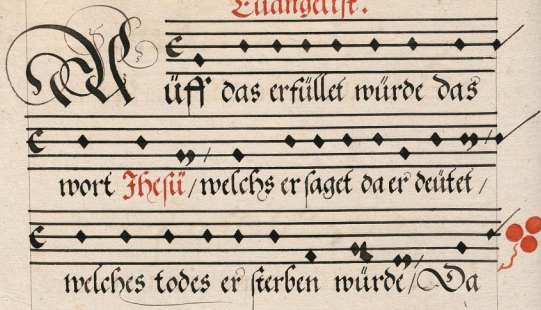 Euangelist.
Auff das erfüllet würde das
wort Jhesu / welchs er saget da er deütet /
welches todes er sterben würde / Da